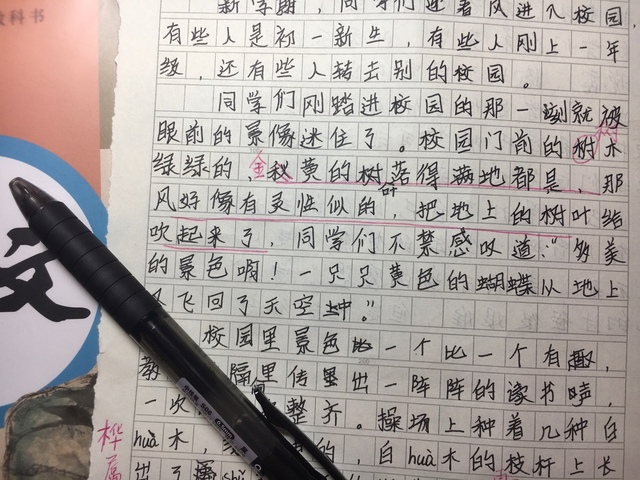 教科书
文
新学期，同学们迎着风进入校园，
有些人是初一新生，有些人刚上一年
级，还有些人转去别的校园。
同学们刚踏进校园的那一刻就被
眼前的景像迷住了。校园门前的树木
绿绿的，金秋黄的树落得满地都是，那
叶
风好像有灵性似的，把地上的树叶给
吹起来了，同学们不禁感叹道：“多美
的景色啊！一只只黄色的蝴蝶从地上
飞回了天空中。”
校园里景色比一个比一个有趣，
教 隔里传出一阵阵的读书声，
一次 整齐。操场上种着几种白
桦
huà木， 的，白huà木的枝杆上长
属
出了 shǔ